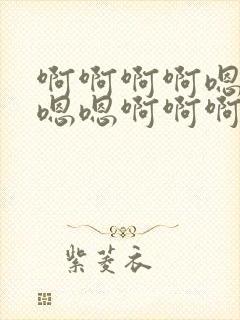 啊啊啊啊嗯
嗯嗯啊啊啊
紫菱衣